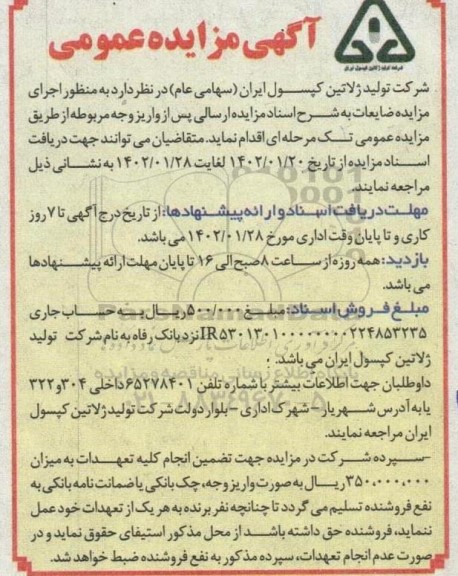 آگهی مزایده عمومی
شرکت تولید ژلاتین کپسول ایران
شرکت تولید ژلاتین کپسول ایران (سهامی عام) در نظر دارد به منظور اجرای
مزایده ضایعات به شرح اسناد مزایده ارسالی پس از واریز وجه مربوطه از طریق
مزایده عمومی تک مرحله ای اقدام نماید. متقاضیان می توانند جهت دریافت
اسناد مزایده از تاریخ ۱۴۰۲/۰۱/۲۰ لغایت ۱۴۰۲/۰۱/۲۸ به نشانی ذیل
مراجعه نمایند.
مهلت دریافت اسناد و ارائه پیشنهادها: از تاریخ درج آگهی تا ۷ روز
کاری و تا پایان وقت اداری مورخ ۱۴۰۲/۰۱/۲۸ می باشد.
بازدید: همه روزه از ساعت ۸ صبح الی ۱۶ تا پایان مهلت ارائه پیشنهادها
می باشد.
مبلغ فروش اسناد: مبلغ ۵۰۰/۰۰۰ ریال به حساب جاری
IR۵۳۰۱۳۰۱۰۰۰۰۰۰۰۰۲۲۴۸۵۳۲۳۵ نزد بانک رفاه به نام شرکت تولید
ژلاتین کپسول ایران می باشد.
داوطلبان جهت اطلاعات بیشتر با شماره تلفن ۶۵۲۷۸۴۰۱ داخلی ۳۰۴ و ۳۲۲
یا به آدرس شهریار - شهرک اداری - بلوار دولت شرکت تولید ژلاتین کپسول
ایران مراجعه نمایند.
-سپرده شرکت در مزایده جهت تضمین انجام کلیه تعهدات به میزان
۳۵۰,۰۰۰,۰۰۰ ریال به صورت واریز وجه، چک بانکی یا ضمانت نامه بانکی به
نفع فروشنده تسلیم می گردد تا چنانچه نفر برنده به هر یک از تعهدات خود عمل
ننماید، فروشنده حق داشته باشد از محل مذکور استیفای حقوق نماید و در
صورت عدم انجام تعهدات، سپرده مذکور به نفع فروشنده ضبط خواهد شد.